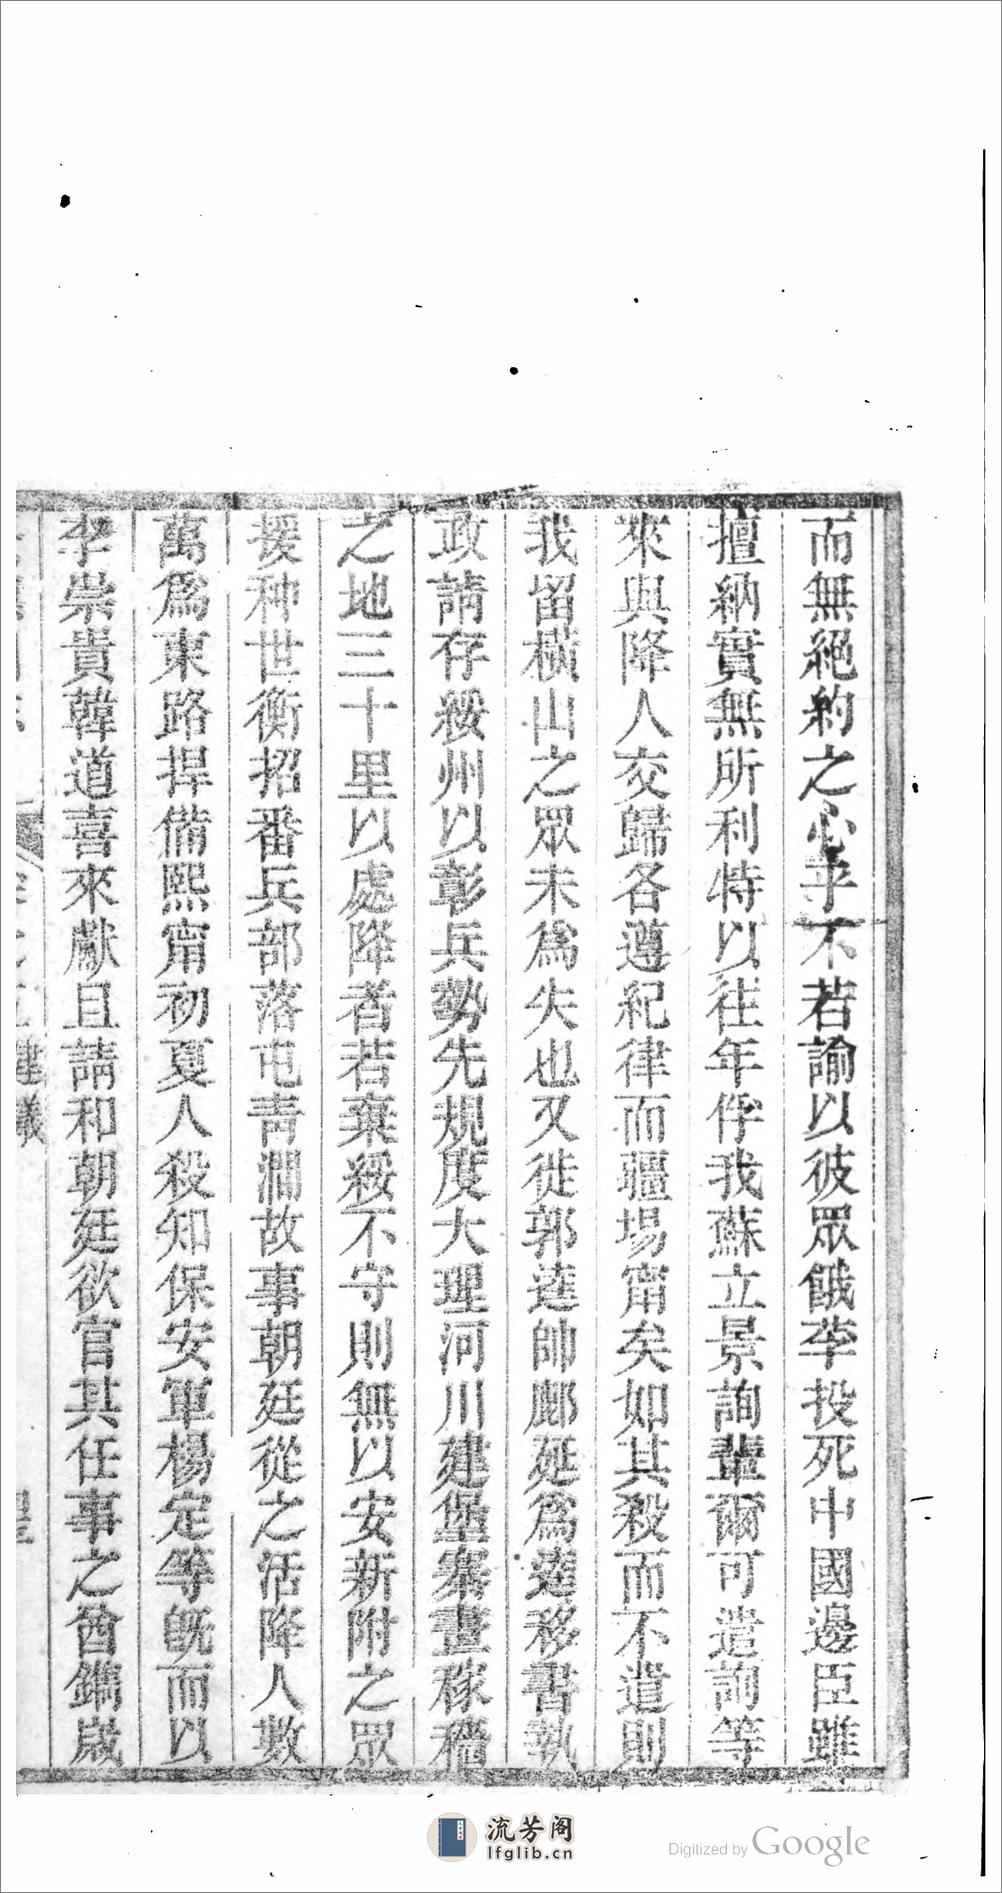 而無絕約之心乎不若諭以彼眾餓莩投死中國邊臣雖
擅納實無所利特以往年俘我蘇立景詢輩爾可遣詢等
來與降人交歸各遵紀律而疆場甯矣如其殺而不遣則
我留橫山之眾未爲失也又徙郭逵帥鄜延爲逵移書執
政請存綏州以彰兵勢先規度大理河川建堡砦畫稼穡
之地三十里以處降者若棄綏不守則無以安新附之眾
援种世衡招番兵部落屯靑澗故事朝廷從之活降人數
萬爲東路捍備熙甯初夏人殺知保安軍楊定等旣而以
李崇貴韓道喜來獻且請和朝廷欲官其任事之酋鐫歲
建議
流芳阁
lfglib.cn
Digitized by Google